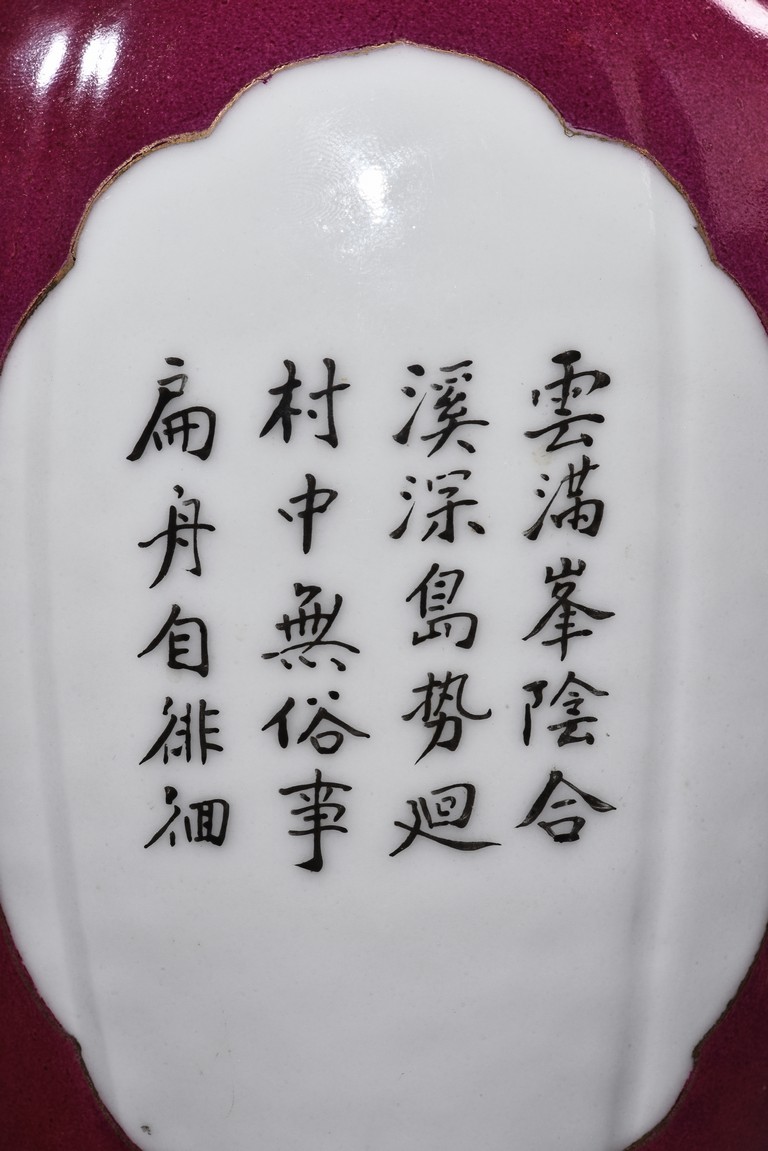 雲滿峯陰合
溪深島势廻
村中無俗事
扁舟自徘徊